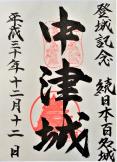 登城記念
続日本百名城
中津城
平成三十年十二月十二日